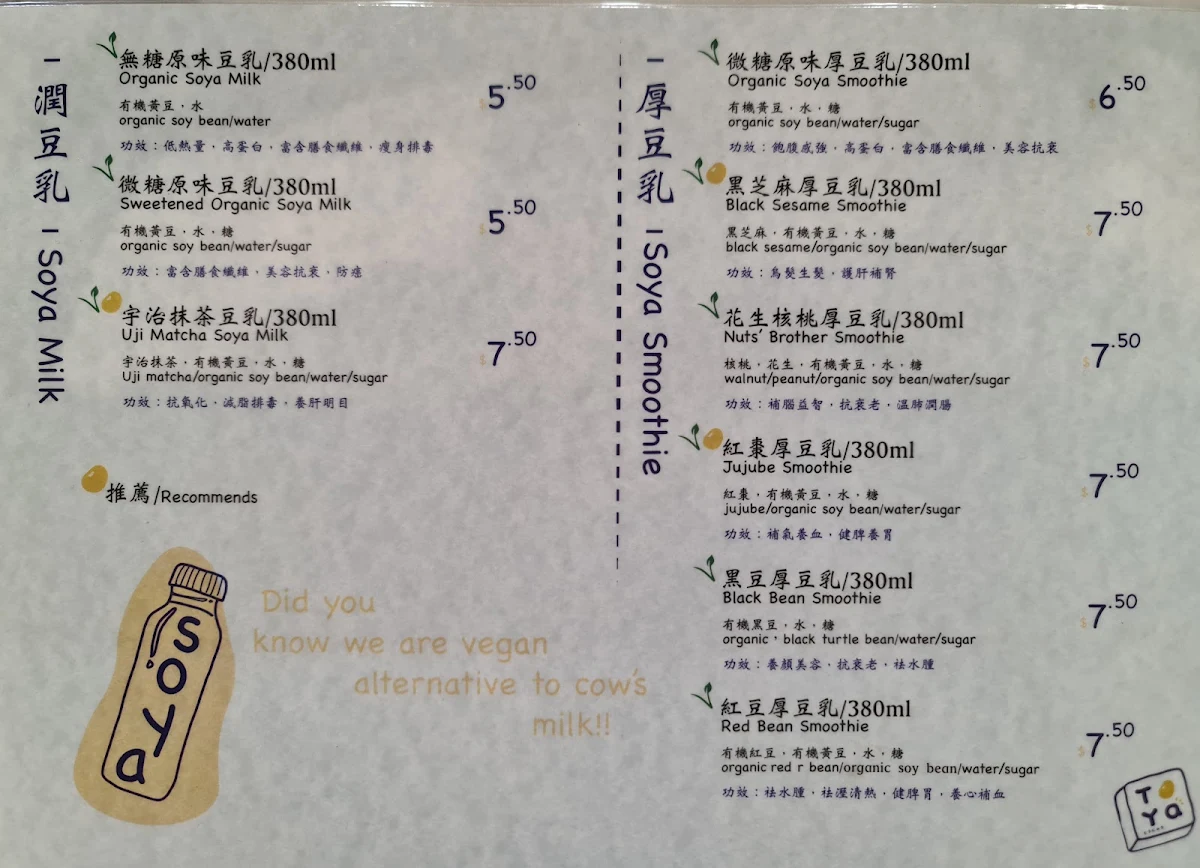 — 潤豆乳 — Soya Milk
無糖原味豆乳/380ml
Organic Soya Milk
5.50
有機黃豆·水
organic soy bean/water
功效：低熱量·高蛋白·富含膳食纖維·瘦身排毒
微糖原味豆乳/380ml
Sweetened Organic Soya Milk
$5.50
有機黃豆·水·糖
organic soy bean/water/sugar
功效：富含膳食纖維·美容抗衰·防癌
宇治抹茶豆乳/380ml
Uji Matcha Soya Milk
$7.50
宇治抹茶·有機黃豆·水·糖
Uji matcha/organic soy bean/water/sugar
功效：抗氧化·減脂排毒·養肝明目
推薦/Recommends
soya
Did you
know we are vegan
alternative to cow's
milk!!
— 厚豆乳 — Soya Smoothie
微糖原味厚豆乳/380ml
Organic Soya Smoothie
$6.50
有機黃豆·水·糖
organic soy bean/water/sugar
功效：飽腹感強·高蛋白·富含膳食纖維·美容抗衰
黑芝麻厚豆乳/380ml
Black Sesame Smoothie
$7.50
黑芝麻·有機黃豆·水·糖
black sesame/organic soy bean/water/sugar
功效：烏髮生髮·護肝補腎
花生核桃厚豆乳/380ml
Nuts' Brother Smoothie
$7.50
核桃·花生·有機黃豆·水·糖
walnut/peanut/organic soy bean/water/sugar
功效：補腦益智·抗衰老·溫肺潤腸
紅棗厚豆乳/380ml
Jujube Smoothie
$7.50
紅棗·有機黃豆·水·糖
jujube/organic soy bean/water/sugar
功效：補氣養血·健脾養胃
黑豆厚豆乳/380ml
Black Bean Smoothie
$7.50
有機黑豆·水·糖
organic·black turtle bean/water/sugar
功效：養顏美容·抗衰老·祛水腫
紅豆厚豆乳/380ml
Red Bean Smoothie
$7.50
有機紅豆·有機黃豆·水·糖
organic red r bean/organic soy bean/water/sugar
功效：祛水腫·祛溼清熱·健脾胃·養心補血
TOYa